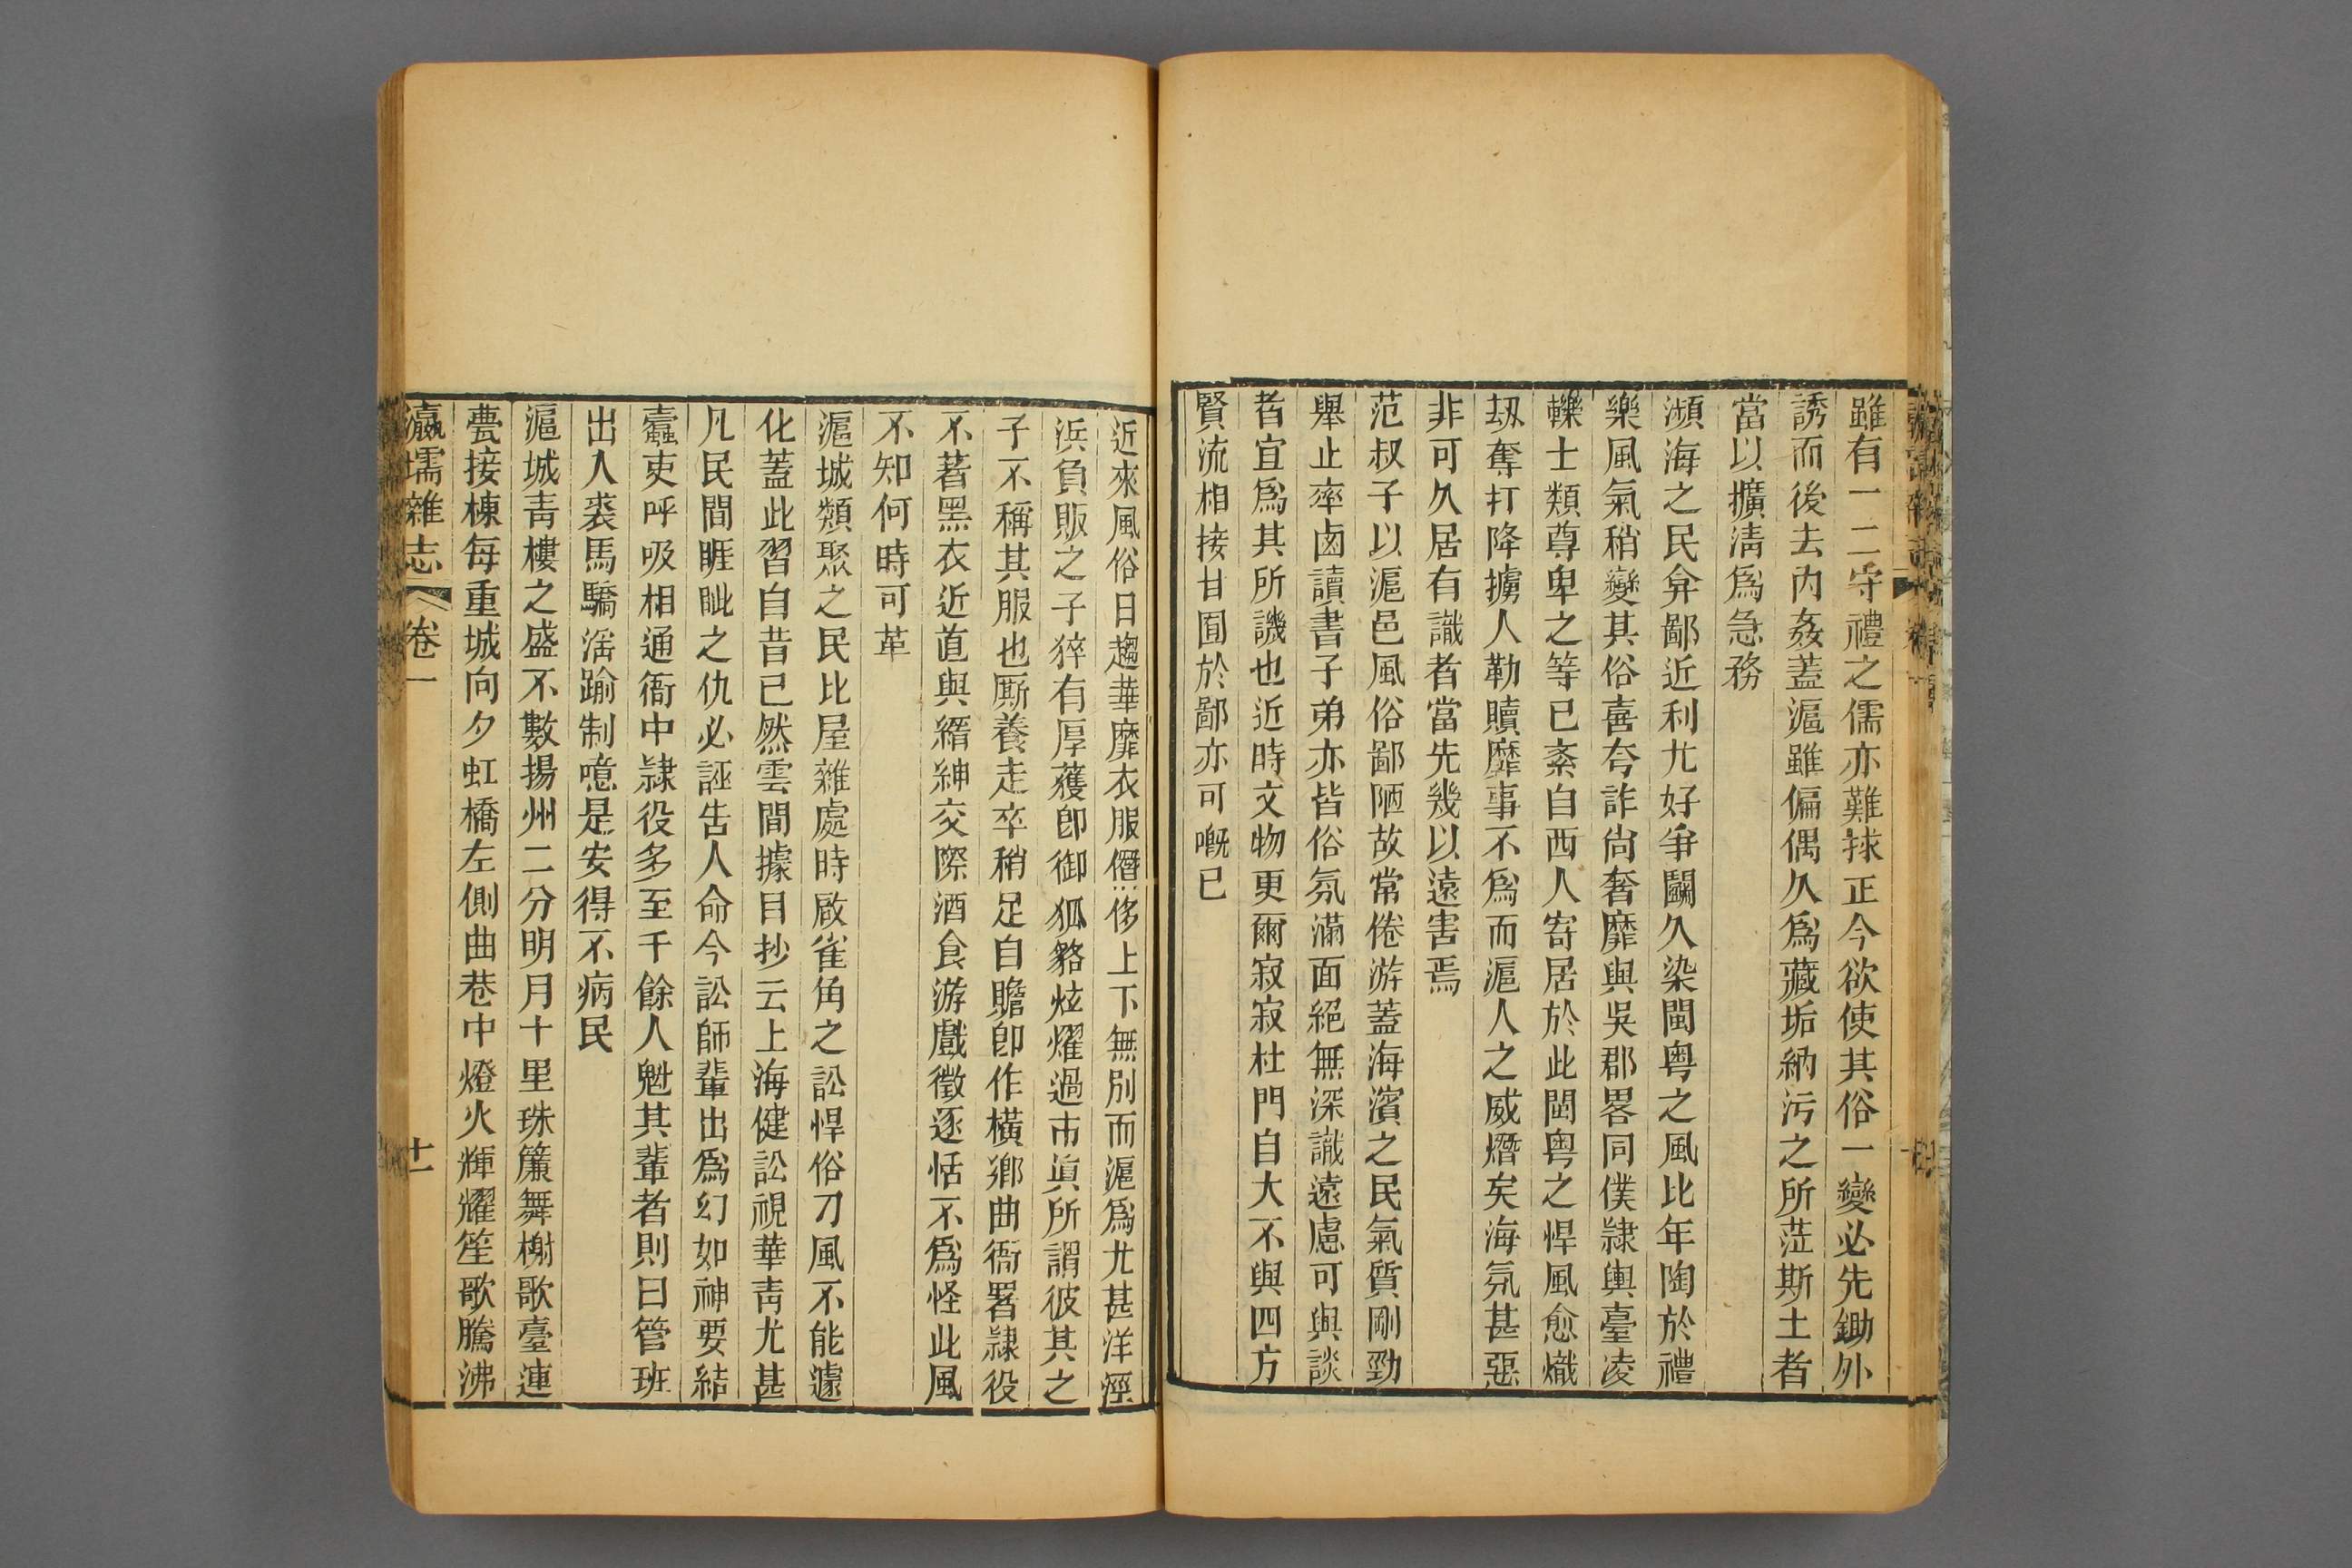 雖有一二守禮之儒亦難捄正今欲使其俗一變必先鋤外
誘而後去內姦蓋滬雖偏偶久爲藏垢納污之所蒞斯土者
當以擴淸爲急務
瀕海之民弇鄙近利尤好爭鬬久染閩粤之風比年陶於禮
樂風氣稍變其俗喜夸詐尙奢靡與吳郡畧同僕隸輿臺凌
轢士類尊卑之等已紊自西人寄居於此閩粤之悍風愈熾
刼奪打降擄人勒贖靡事不爲而滬人之威熸矣海氛甚惡
非可久居有識者當先幾以遠害焉
范叔子以滬邑風俗鄙陋故常倦游蓋海濱之民氣質剛勁
舉止率鹵讀書子弟亦皆俗氛滿面絕無深識遠慮可與談
者宜爲其所譏也近時文物更爾寂寂杜門自大不與四方
賢流相接甘囿於鄙亦可嘅已
近來風俗日趨華靡衣服僭侈上下無別而滬爲尤甚洋涇
浜負販之子猝有厚獲卽御狐貉炫燿過市眞所謂彼其之
子不稱其服也厮養走卒稍足自贍卽作橫鄕曲衙署隸役
不著黑衣近直與縉紳交際酒食游戲徵逐恬不爲怪此風
不知何時可革
滬城類聚之民比屋雜處時啟雀角之訟悍俗刀風不能遽
化蓋此習自昔已然雲間據目抄云上海健訟視華靑尤甚
凡民間睚眦之仇必誣告人命今訟師輩出爲幻如神要結
蠹吏呼吸相通衙中隸役多至千餘人魁其輩者則曰管班
出入裘馬驕淫踰制噫是安得不病民
滬城靑樓之盛不數揚州二分明月十里珠簾舞榭歌臺連
甍接棟每重城向夕虹橋左側曲巷中燈火輝耀笙歌騰沸
瀛壖雜志 卷一 十一